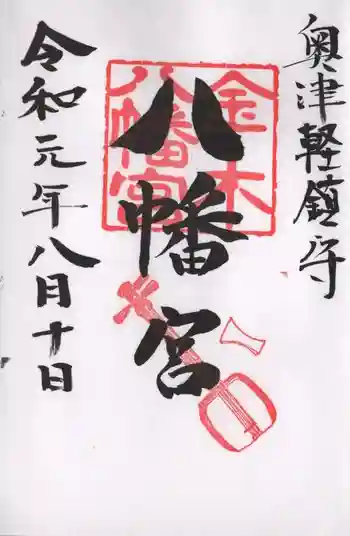 奥津軽鎮守
八幡宮
金木
八幡宮
令和元年八月十日